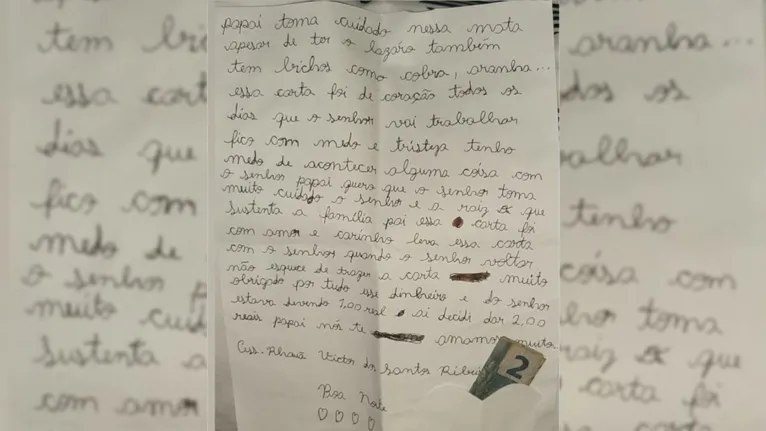 papai toma cuidado nessa mata
apesar de ter o lazaro também
tem bichos como cobra, aranha...
essa carta foi de coração todos os
dias que o senhor vai trabalhar
fico com medo e tristeza tenho
medo de acontecer alguma coisa com
o senhor papai quero que o senhor toma
muito cuidado o senhor e a raiz que
sustenta a família pai essa carta foi
com amor e carinho leva essa carta
com o senhor quando o senhor voltar
não esquece de trazer a carta muito
obrigado por tudo esse dinheiro e do senhor
estava devendo 1,00 real ai decidi dar 2,00
reais papai nós te amamos muito..
Ass. Victor dos Santos Ribeiro
Boa Noite
2